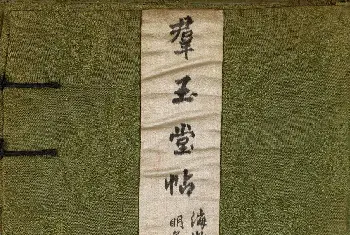 羣玉堂帖
海
明